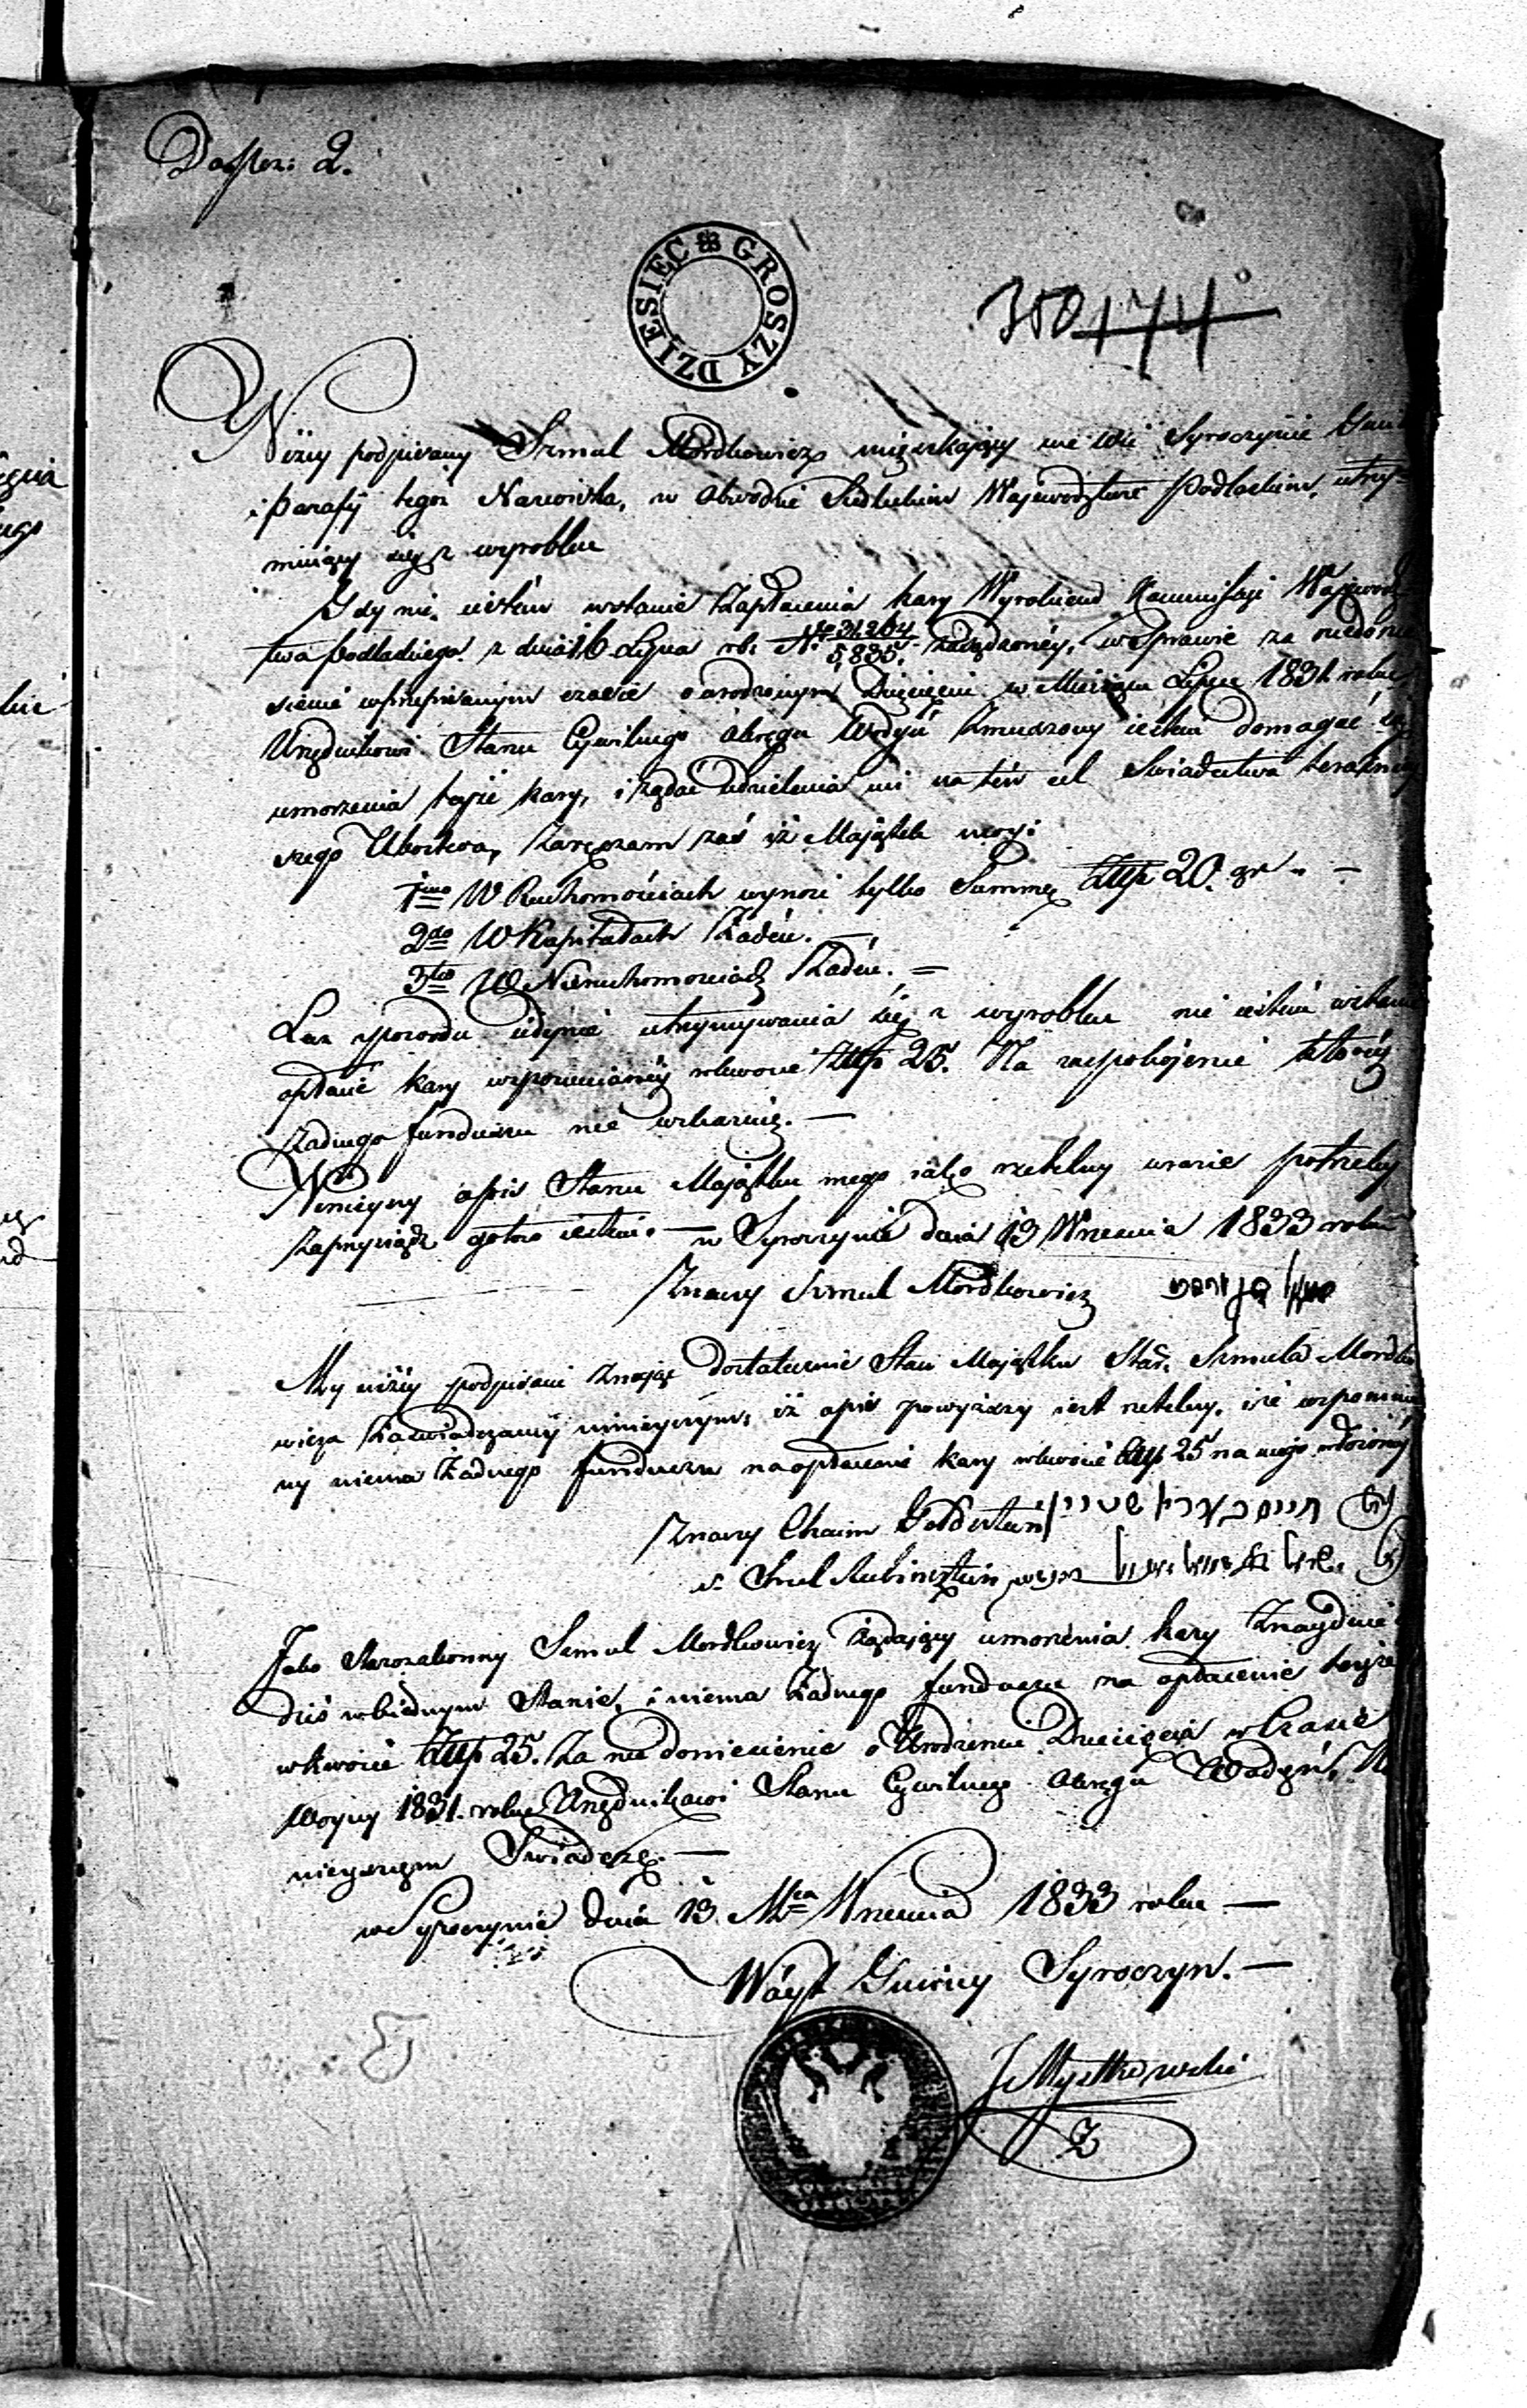 Do Nru: 2.
DZIESIĘC GROSZY
350 174
Niżey podpisany Szmul Mordkowicz mięszkaiący we wsi Syroczynie Gmin
i Parafij tegoż Nazwiska, w Obwodzie Siedleckim Wojewodztwie Podlaskim, utrzy-
muiący się z wyrobku
Gdy nie iestem wstanie Zapłacenia kary Wyrokiem Kommissyi Wojewodz
twa Podlaskiego z dnia 16 Lipca rb. No 31,264/5,835. zasądzoney, w Sprawie za niedonie
sienie wprzepisanym czasie o urodzonym Dziecięciu w Miesiącu Lipcu 1831 roku,
Urzędnikowi Stanu Cywilnego Okręgu Wodyń Zmuszony iestem domagać się
umorzenia teyże kary, i żądać udzielenia mi na ten cel Swiadectwa
szego Ubostwa, Zaręczam zaś iż Majątek moy:
1mo W Ruchomościach wynosi tylko Summę Złłp 20. gr „ —
2do W Kapitałach Żaden. —
3tio W Nieruchomosciach Żaden. =
Lecz z powodu iedynie utrzymywania się z wyrobku nie iestem wstanie
opłacić kary wspomnioney wkwocie Złłp 25. Na zaspokojenie którey
żadnego funduszu nie wskazuię. —
Ninieyszy opis Stanu Majątku mego iako rzetelny wrazie potrzeby
zaprzysiądz gotow iestem. — w Syroczynie dnia 13 Wrzesnia 1833 roku
Znany Szmul Mordkowicz
My niżey podpisani znaiąc dostatecznie Stan Majątku Star. Szmula Mordko
wicza Zaswiadczamy ninieyszym, iż opis powyższy iest rzetelny, i że wspomnio
ny niema Żadnego funduszu na opłacenie kary wkwocie Złłp 25 na niego włożoney
Znany Chaim Goldsztein חיים גאלדשטיין
d. Srul Rubinsztein
Jako Starozakonny Szmul Mordkowicz żądaiący umorzenia kary Znayduie
dziś wbiednym Stanie, i niema Żadnego funduszu na opłacenie teyże
wkwocie Złłp 25. Za nie doniesienie o Urodzeniu Dziecięcia w Czasie
Woyny 1831. roku Urzędnikowi Stanu Cywilnego Okręgu Wodyń, Ni
nieyszym Swiadczę. —
w Syroczynie dnia 13. Mca Wrzesnia 1833 roku —
Wóyt Gminy Syroczyn. —
J Mystkowski